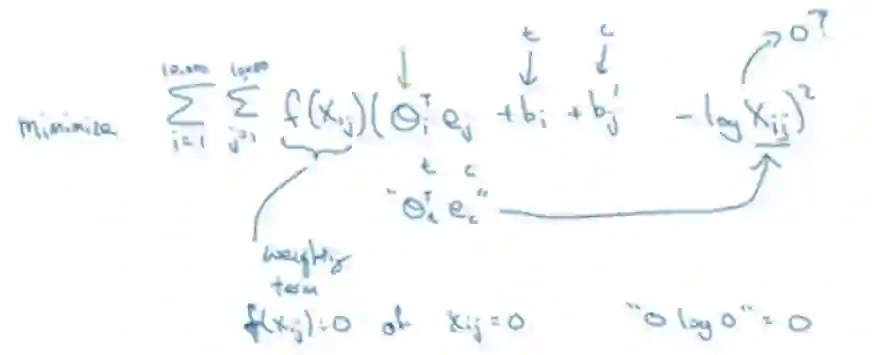 t c → 0?
minimize ∑_{i=1}^{10,000} ∑_{j=1}^{10,000} f(X_ij)(θ_i^T e_j + b_i + b_j' - log X_ij)^2
t c
"θ_t^T e_c"
weighting
term
f(X_ij)=0 if X_ij=0 "0 log 0"=0